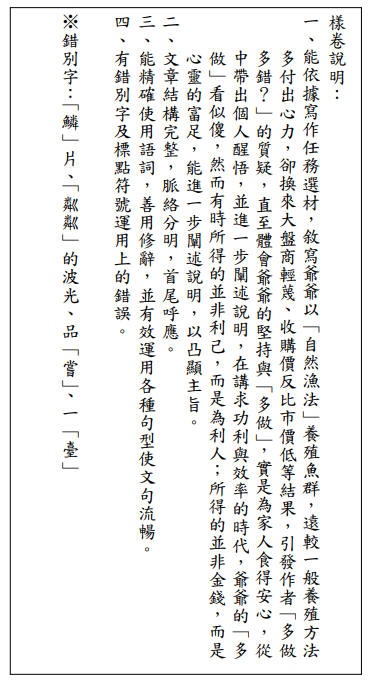 樣卷說明：
一、能依據寫作任務選材，敘寫爺爺以「自然漁法」養殖魚群，遠較一般養殖方法
多付出心力，卻換來大盤商輕蔑、收購價反比市價低等結果，引發作者「多做
多錯？」的質疑，直至體會爺爺的堅持與「多做」，實是為家人食得安心，從
中帶出個人醒悟，並進一步闡述說明，在講求功利與效率的時代，爺爺的「多
做」看似傻，然而有時所得的並非利己，而是為利人；所得的並非金錢，而是
心靈的富足，能進一步闡述說明，以凸顯主旨。
二、文章結構完整，脈絡分明，首尾呼應。
三、能精確使用語詞，善用修辭，並有效運用各種句型使文句流暢。
四、有錯別字及標點符號運用上的錯誤。
※錯別字：「鱗」片、「粼粼」的波光、品「嘗」、一「臺」